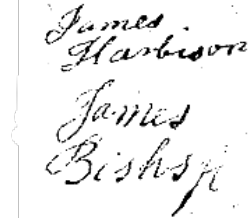 James
Harbison
James
Bishop